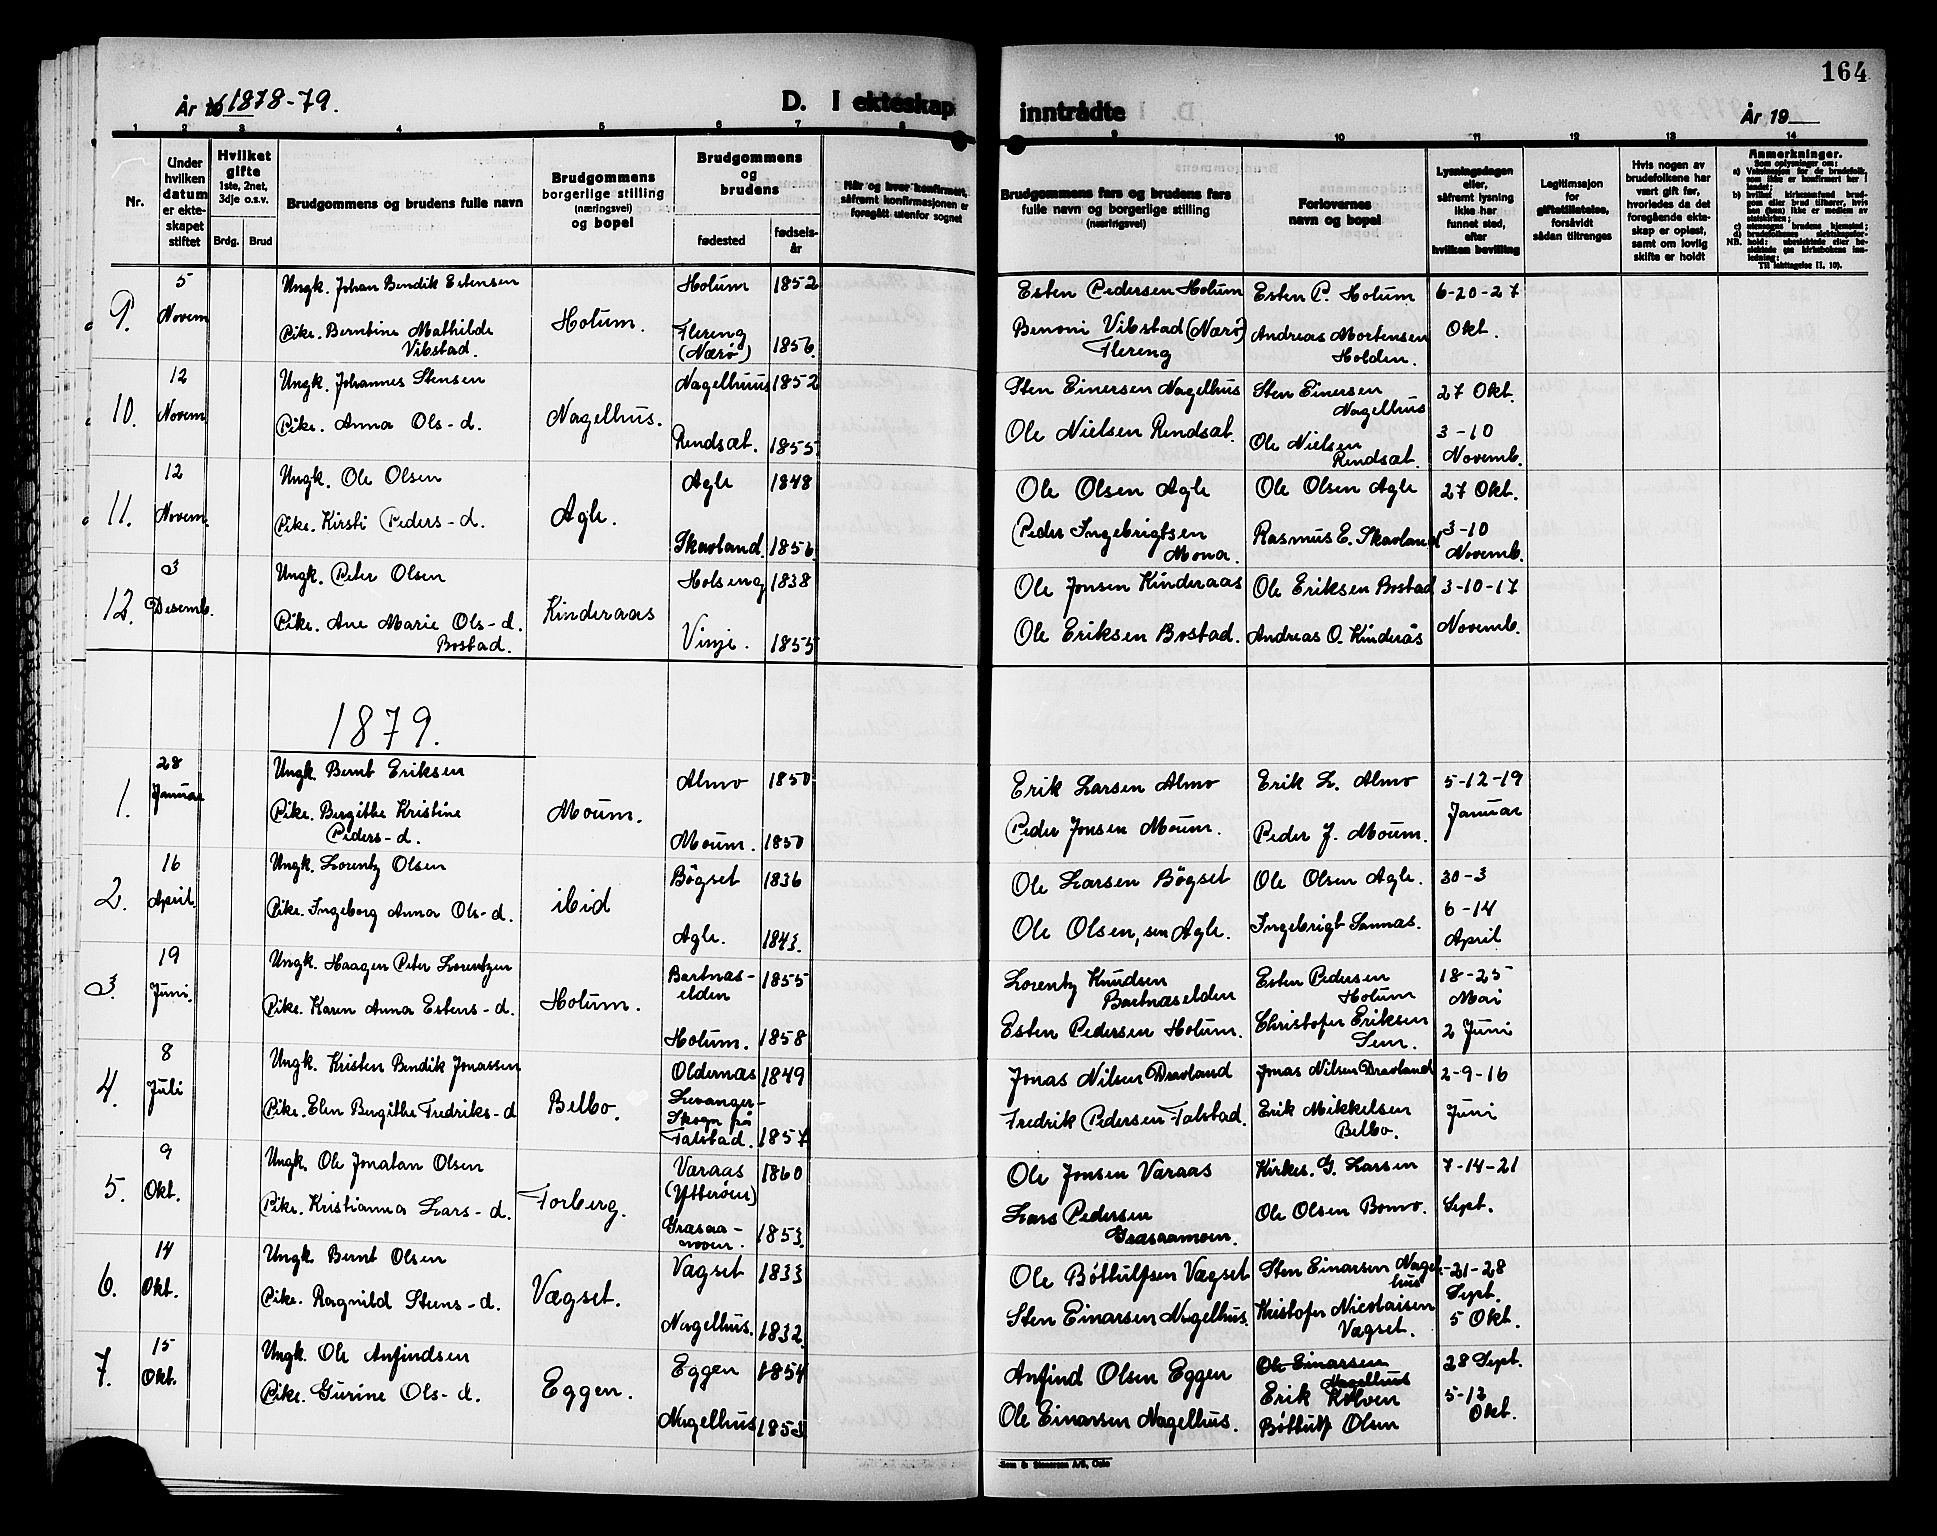 164
År 19 1878-79.
D. I ekteskap inntrådte
År 19
1 2 3 4 5 6 7 8 9 10 11 12 13 14
Nr.
Under hvilken datum er ekteskapet stiftet
Hvilket gifte 1ste, 2net, 3dje o.s.v.
Brdg. Brud
Brudgommens og brudens fulle navn
Brudgommens borgerlige stilling (næringsvei) og bopel
Brudgommens og brudens
fødested
fødselsår
Når og hvor konfirmert, såfremt konfirmasjonen er foregått utenfor sognet
Brudgommens fars og brudens fars fulle navn og borgerlige stilling (næringsvei)
Forlovernes navn og bopel
Lysningsdagen eller, såfremt lysning ikke har funnet sted, efter hvilken bevilling
Legitimasjon for giftetillatelse, forsåvidt sådan tiltrenges
Hvis nogen av brudefolkene har vært gift før, hvorledes da det foregående ekteskap er opløst, samt om lovlig skifte er holdt
Anmerkninger.
9. 5 Novem Ungk. Johan Bendik Estensen Holum. Holum 1852 Esten Pedersen Holum Esten P. Holum 6-20-27 Okt.
Pike. Berntine Mathilde Vibstad. Flereng (Nærø) 1856. Benoni Vibstad (Nærø) Flereng Andreas Mortensen Holden.
10. 12 Novem Ungk. Johannes Stensen Nagelhus. Nagelhuus 1852 Sten Einersen Nagelhus Sten Einersen Nagelhus 27 Okt.
Pike. Anna Ols-d. Rendsæt. 1855 Ole Nielsen Rendsæt. Ole Nielsen Rendsæt. 3-10 Novemb.
11. 12 Novem. Ungk. Ole Olsen Agle. Agle 1848 Ole Olsen Agle Ole Olsen Agle 27 Okt.
Pike. Kirsti Peders-d. Skavland. 1856 Peder Ingebrigtsen Mona. Rasmus E. Skavland 3-10 Novemb.
12. 3 Desemb. Ungk. Peter Olsen Kinderaas Holseng 1838 Ole Jonsen Kinderaas Ole Eriksen Bostad 3-10-17 Novemb.
Pike. Ane Marie Ols-d. Bostad. Vinje. 1855 Ole Eriksen Bostad. Andreas O. Kinderås
1879.
1. 28 Januar Ungk. Bernt Eriksen Moum. Almo 1850 Erik Larsen Almo Erik L. Almo 5-12-19 Januar
Pike. Bergithe Kristine Peders-d. Moum. 1850 Peder Jonsen Moum. Peder J. Moum.
2. 16 April. Ungk. Lorentz Olsen ibid Bögset 1836 Ole Larsen Bögset Ole Olsen Agle. 30-3
Pike. Ingeborg Anna Ols-d. Agle. 1843. Ole Olsen, sen Agle. Ingebrigt Sannas. 6-14 April
3. 19 Juni. Ungk. Haagen Peter Lorentzen Holum. Bartnas-elden 1855 Lorentz Knudsen Bartnaselden Esten Pedersen Holum 18-25 Mai
Pike. Karen Anna Estens-d. Holum. 1858 Esten Pedersen Holum. Christofer Eriksen Sem. 2 Juni
4. 8 Juli Ungk. Kristen Bendik Jonassen Belbo. Oldernas 1849 Jonas Nilsen Dravland Jonas Nilsen Dravland 2-9-16 Juni
Pike. Elen Bergithe Fredriks-d Levanger-Skogn på Talstad. 1857 Fredrik Pedersen Talstad. Erik Mikkelsen Belbo.
5. 9 Okt. Ungk. Ole Jonatan Olsen Forberg. Varaas (Ytterøen) 1860 Ole Jonsen Varaas Kirkes. G. Larsen 7-14-21 Sept.
Pike. Kristianna Lars-d. Grasaamoen. 1853. Lars Pedersen Grasaamoen. Ole Olsen Bomo.
6. 14 Okt. Ungk. Bernt Olsen Vægset. Vagset 1833 Ole Bóttulfsen Vægset Sten Einarsen Nagelhus -21-28 Sept.
Pike. Ragnild Steens-d. Nagelhus. 1832. Sten Einarsen Nagelhus. Kristofer Nicolaisen Vægset. 5 Okt.
7. 15 Okt. Ungk. Ole Anfindsen Eggen. Eggen 1854 Anfind Olsen Eggen Ole Einarsen Nagelhus 28 Sept.
Erik Kølven
Pike. Gurine Ols-d. Nagelhus 1853 Ole Einarsen Nagelhus. Bóttulf Olsen 5-12 Okt.